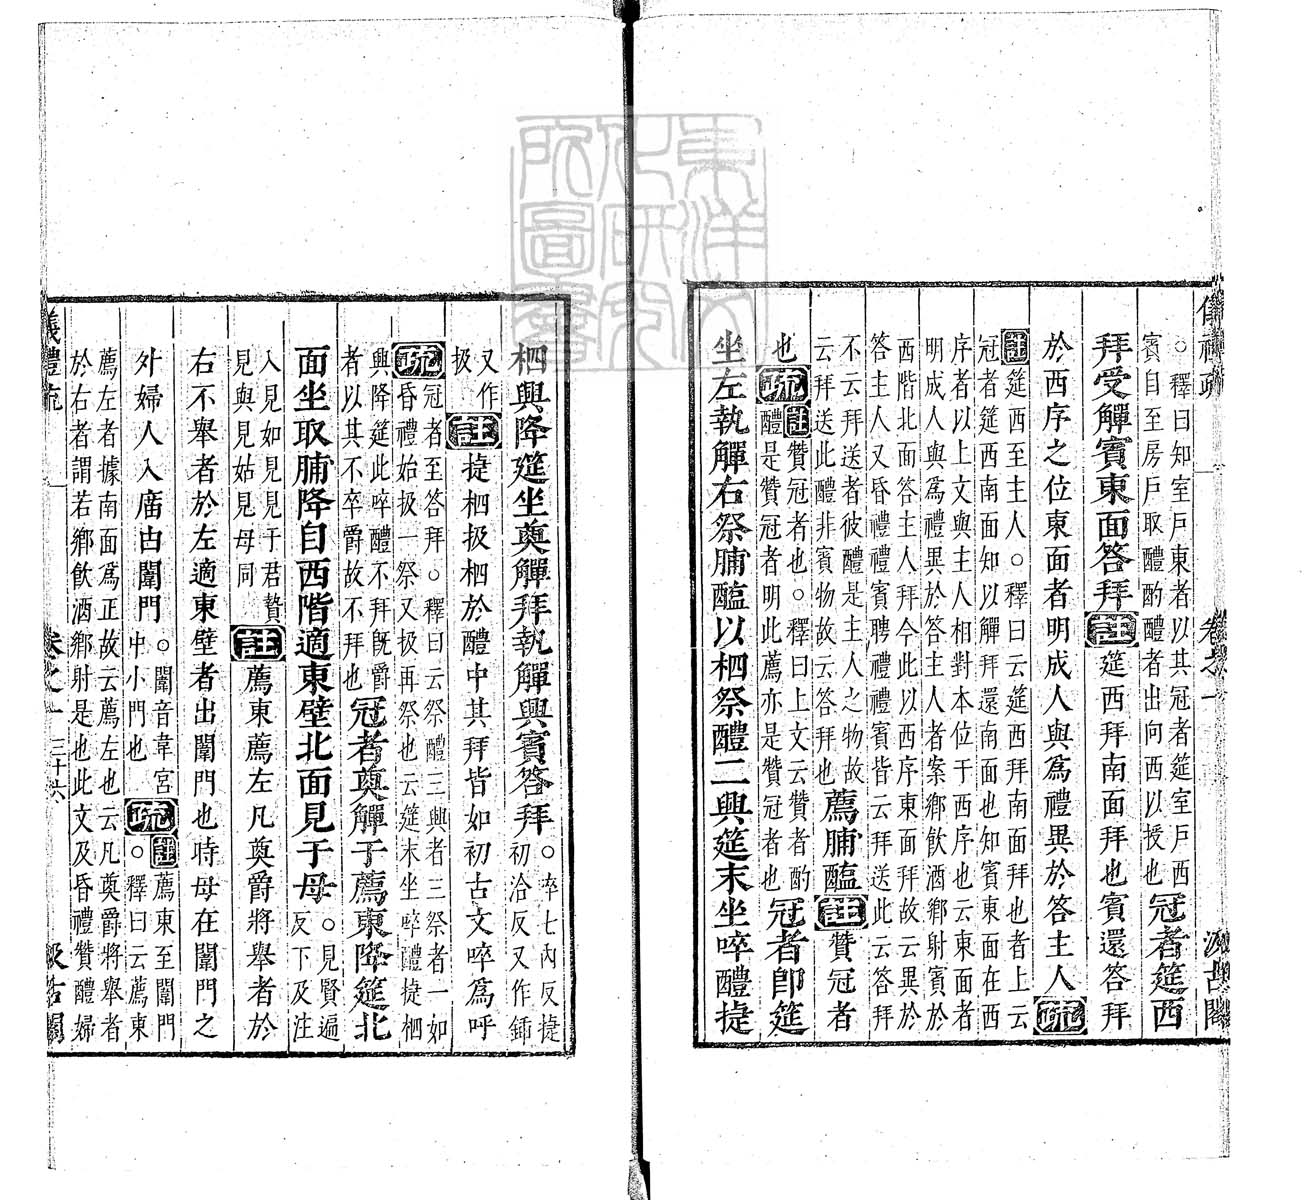 ○釋曰知室戶東者以其冠者筵室戶西
賓自至房戶取醴酌醴者出向西以授也
冠者筵西
拜受觶賓東面答拜註筵西拜南面拜也賓還答拜
於西序之位東面者明成人與爲禮異於答主人疏
註筵西至主人○釋曰云筵西拜南面拜也者上云
冠者筵西南面知以觶拜還南面也知賓東面在西
序者以上文與主人相對本位于西序也云東面者
明成人與爲禮異於答主人者案鄉飲酒鄉射賓於
西階北面答主人拜今此以西序東面拜故云異於
答主人又昏禮禮賓聘禮禮賓皆云拜送此云答拜
不云拜送者彼醴是主人之物故
云拜送此醴非賓物故云答拜也
薦脯醢註贊冠者
也疏註贊冠者也○釋曰上文云贊者酌
醴是贊冠者明此薦亦是贊冠者也
冠者即筵
坐左執觶右祭脯醢以柶祭醴三興筵末坐啐醴捷
柶興降筵坐奠觶拜執觶興賓答拜○啐七內反捷
初洽反又作鍤
又作
扱
註捷柶扱柶於醴中其拜皆如初古文啐爲呼
疏冠者至答拜○釋曰云祭醴三興者三祭者一如
昏禮始扱一祭又扱再祭也云筵末坐啐醴捷柶
興降筵此啐醴不拜既爵
者以其不卒爵故不拜也
冠者奠觶于薦東降筵北
面坐取脯降自西階適東壁北面見于母○見賢遍
反下及注
入見如見見于君贄
見與見姑見母同
註薦東薦左凡奠爵將舉者於
右不舉者於左適東壁者出闈門也時母在闈門之
外婦人入廟由闈門○闈音韋宮
中小門也
疏註薦東至闈門
○釋曰云薦東
薦左者據南面爲正故云薦左也云凡奠爵將舉者
於右者謂若鄉飲酒鄉射是也此文及昏禮贊醴婦
儀禮疏
卷之一
三十六
汲古閣